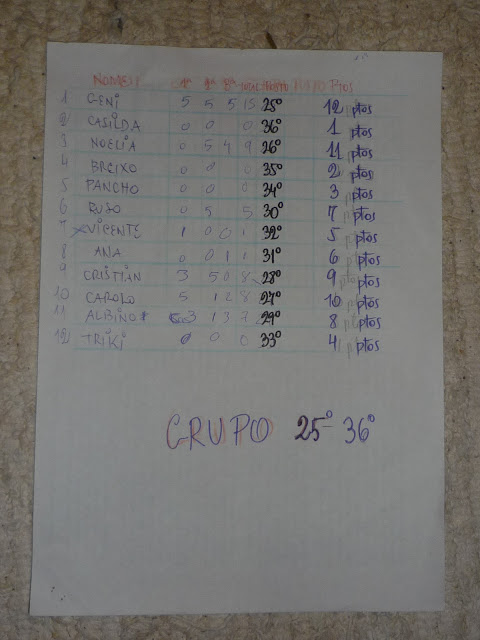 NOMES 1ª 2ª 3ª TOTAL PUESTO Ptos
1 GENI 5 5 5 15 25º 12 ptos
2 CASILDA 0 0 0 36º 1 ptos
3 NOELIA 0 5 4 9 26º 11 ptos
4 BREIXO 0 0 0 35º 2 ptos
5 PANCHO 0 0 0 34º 3 ptos
6 RUSO 0 5 5 30º 7 ptos
7 VICENTE 1 0 0 1 32º 5 ptos
8 ANA 0 0 1 1 31º 6 ptos
9 CRISTIAN 3 5 0 8 28º 9 ptos
10 CAROLO 5 1 2 8 27º 10 ptos
11 ALBINO 3 1 3 7 29º 8 ptos
12 TRIKI 0 0 0 33º 4 ptos
GRUPO 25º 36º